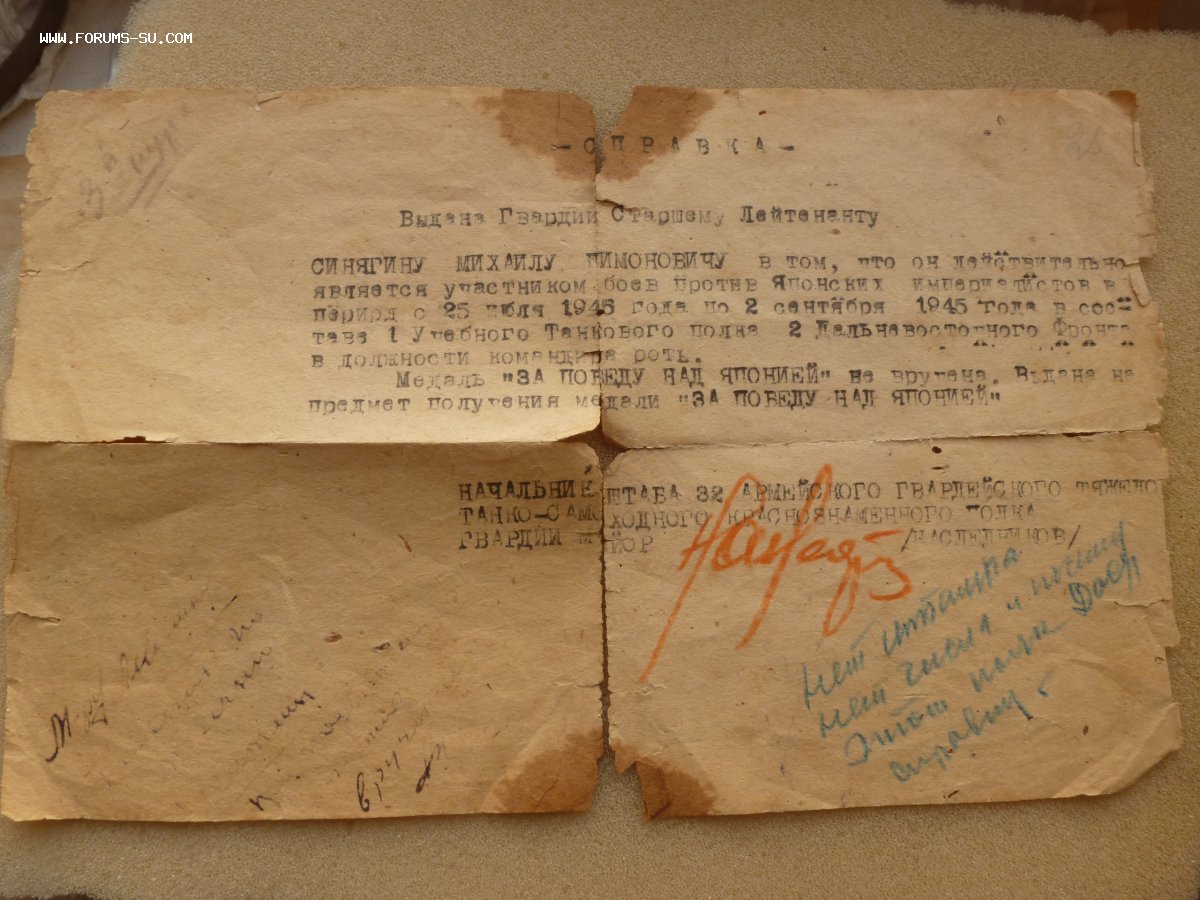 WWW.FORUMS-SU.COM
3й
- С П Р А В К А -
Выдана Гвардии Старшему Лейтенанту
СИНЯГИНУ МИХАИЛУ ПИМОНОВИЧУ в том, что он действительно
является участником боев против Японских империалистов в
период с 25 июля 1945 года по 2 сентября 1945 года в сос-
таве 1 Учебного Танкового полка 2 Дальневосточного Фронта
в должности командира роты.
Медаль "ЗА ПОБЕДУ НАД ЯПОНИЕЙ" не вручена. Выдана на
предмет получения медали "ЗА ПОБЕДУ НАД ЯПОНИЕЙ"
НАЧАЛЬНИК ШТАБА 32 АРМЕЙСКОГО ГВАРДЕЙСКОГО ТЯЖЕЛО
ТАНКО-САМОХОДНОГО КРАСНОЗНАМЕННОГО ПОЛКА
ГВАРДИИ МАЙОР /НАСЛЕДНИКОВ/
нет штампа
нет числа и почему
этот полк дает
справку.